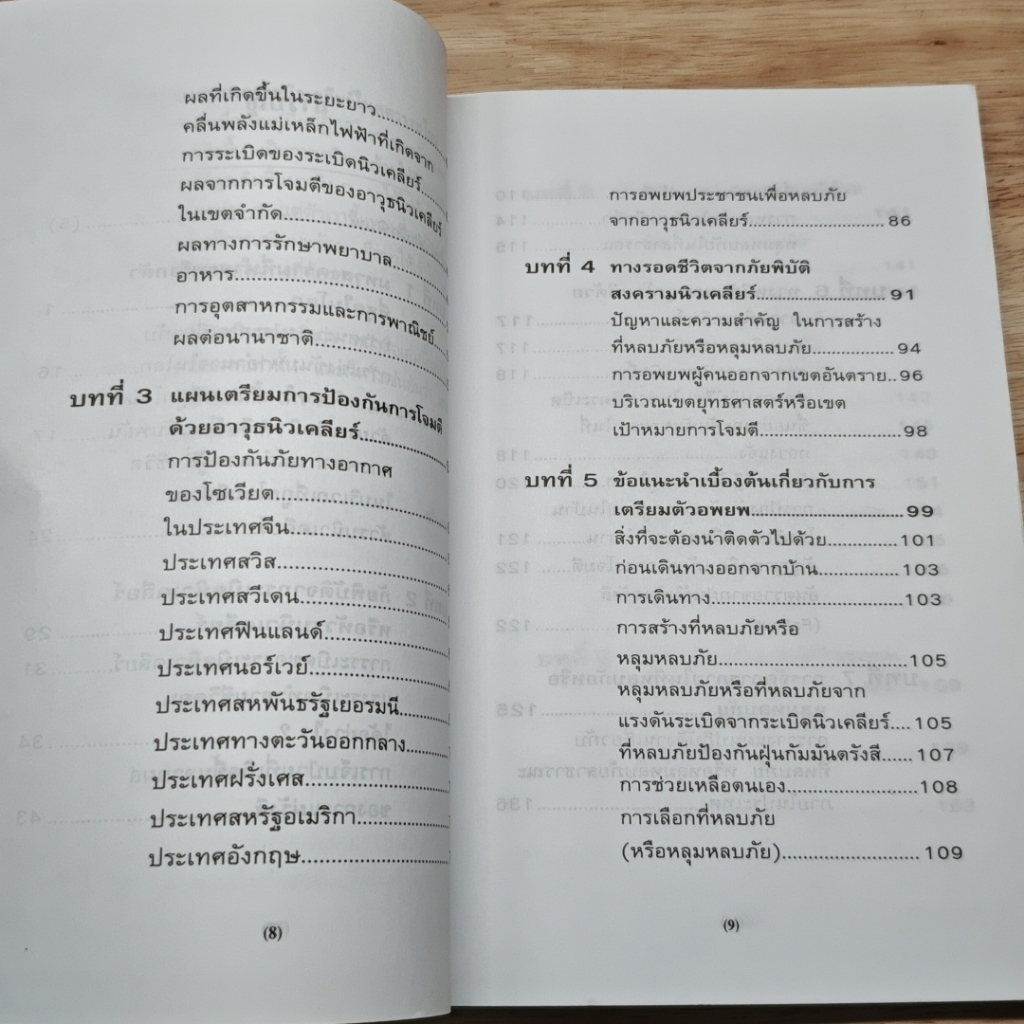 ผลที่เกิดขึ้นในระยะยาว..................
คลื่นพลังแม่เหล็กไฟฟ้าที่เกิดจาก
การระเบิดของระเบิดนิวเคลียร์.....
ผลจากการโจมตีของอาวุธนิวเคลียร์
ในเขตจำกัด.........................
ผลทางการรักษาพยาบาล.........
อาหาร................................
การอุตสาหกรรมและการพาณิชย์
ผลต่อนานาชาติ....................
บทที่ 3 แผนเตรียมการป้องกันการโจมตี
ด้วยอาวุธนิวเคลียร์...............
การป้องกันภัยทางอากาศ
ของโซเวียต.........................
ในประเทศจีน.......................
ประเทศสวิส.........................
ประเทศสวีเดน......................
ประเทศฟินแลนด์..................
ประเทศนอร์เวย์....................
ประเทศสหพันธรัฐเยอรมนี......
ประเทศทางตะวันออกกลาง.....
ประเทศฝรั่งเศส....................
ประเทศสหรัฐอเมริกา.............
ประเทศอังกฤษ.....................
(8)
การอพยพประชาชนเพื่อหลบภัย
จากอาวุธนิวเคลียร์....................86
บทที่ 4 ทางรอดชีวิตจากภัยพิบัติ
สงครามนิวเคลียร์...................91
ปัญหาและความสำคัญ ในการสร้าง
ที่หลบภัยหรือหลุมหลบภัย............94
การอพยพผู้คนออกจากเขตอันตราย..96
บริเวณเขตยุทธศาสตร์หรือเขต
เป้าหมายการโจมตี.....................98
บทที่ 5 ข้อแนะนำเบื้องต้นเกี่ยวกับการ
เตรียมตัวอพยพ......................99
สิ่งที่จะต้องนำติดตัวไปด้วย...........101
ก่อนเดินทางออกจากบ้าน.............103
การเดินทาง.............................103
การสร้างที่หลบภัยหรือ
หลุมหลบภัย...........................105
หลุมหลบภัยหรือที่หลบภัยจาก
แรงดันระเบิดจากระเบิดนิวเคลียร์....105
ที่หลบภัยป้องกันฝุ่นกัมมันตรังสี......107
การช่วยเหลือตนเอง...................108
การเลือกที่หลบภัย
(หรือหลุมหลบภัย)....................109
(9)